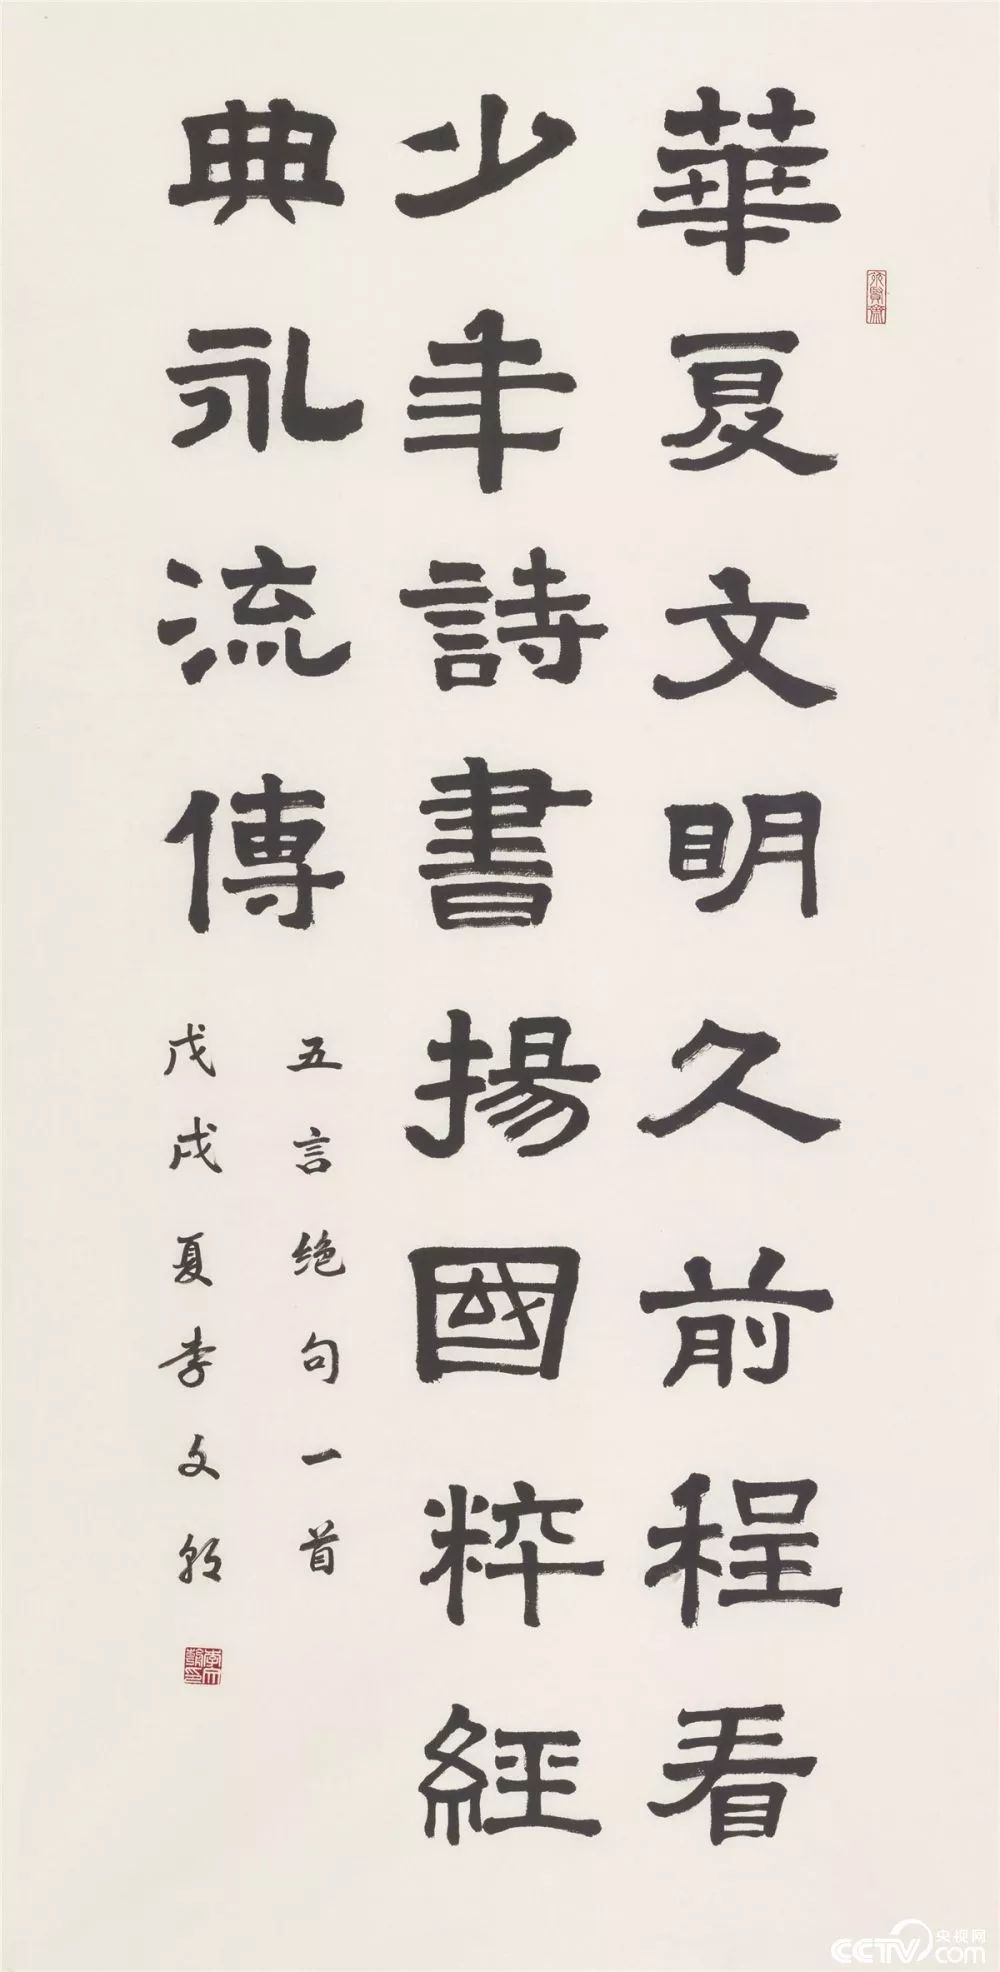 華夏文明久前程看
少年詩書揚國粹經
典永流傳
五言绝句一首
戊戌夏李文朝
央视网
CCTV.com